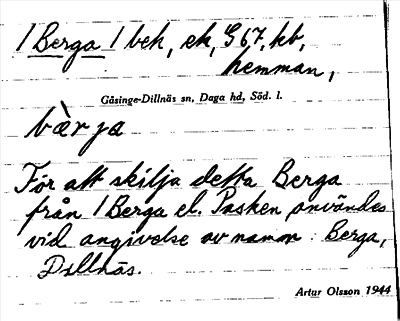 1 Berga 1 bek, ek, G 67, kb,
hemman,
Gåsinge-Dillnäs sn, Daga hd, Söd. l.
bàrja
För att skilja detta Berga
från 1 Berga el. Pasken användes
vid angivelse av namn: Berga,
Dillnäs.
Artur Olsson 1944